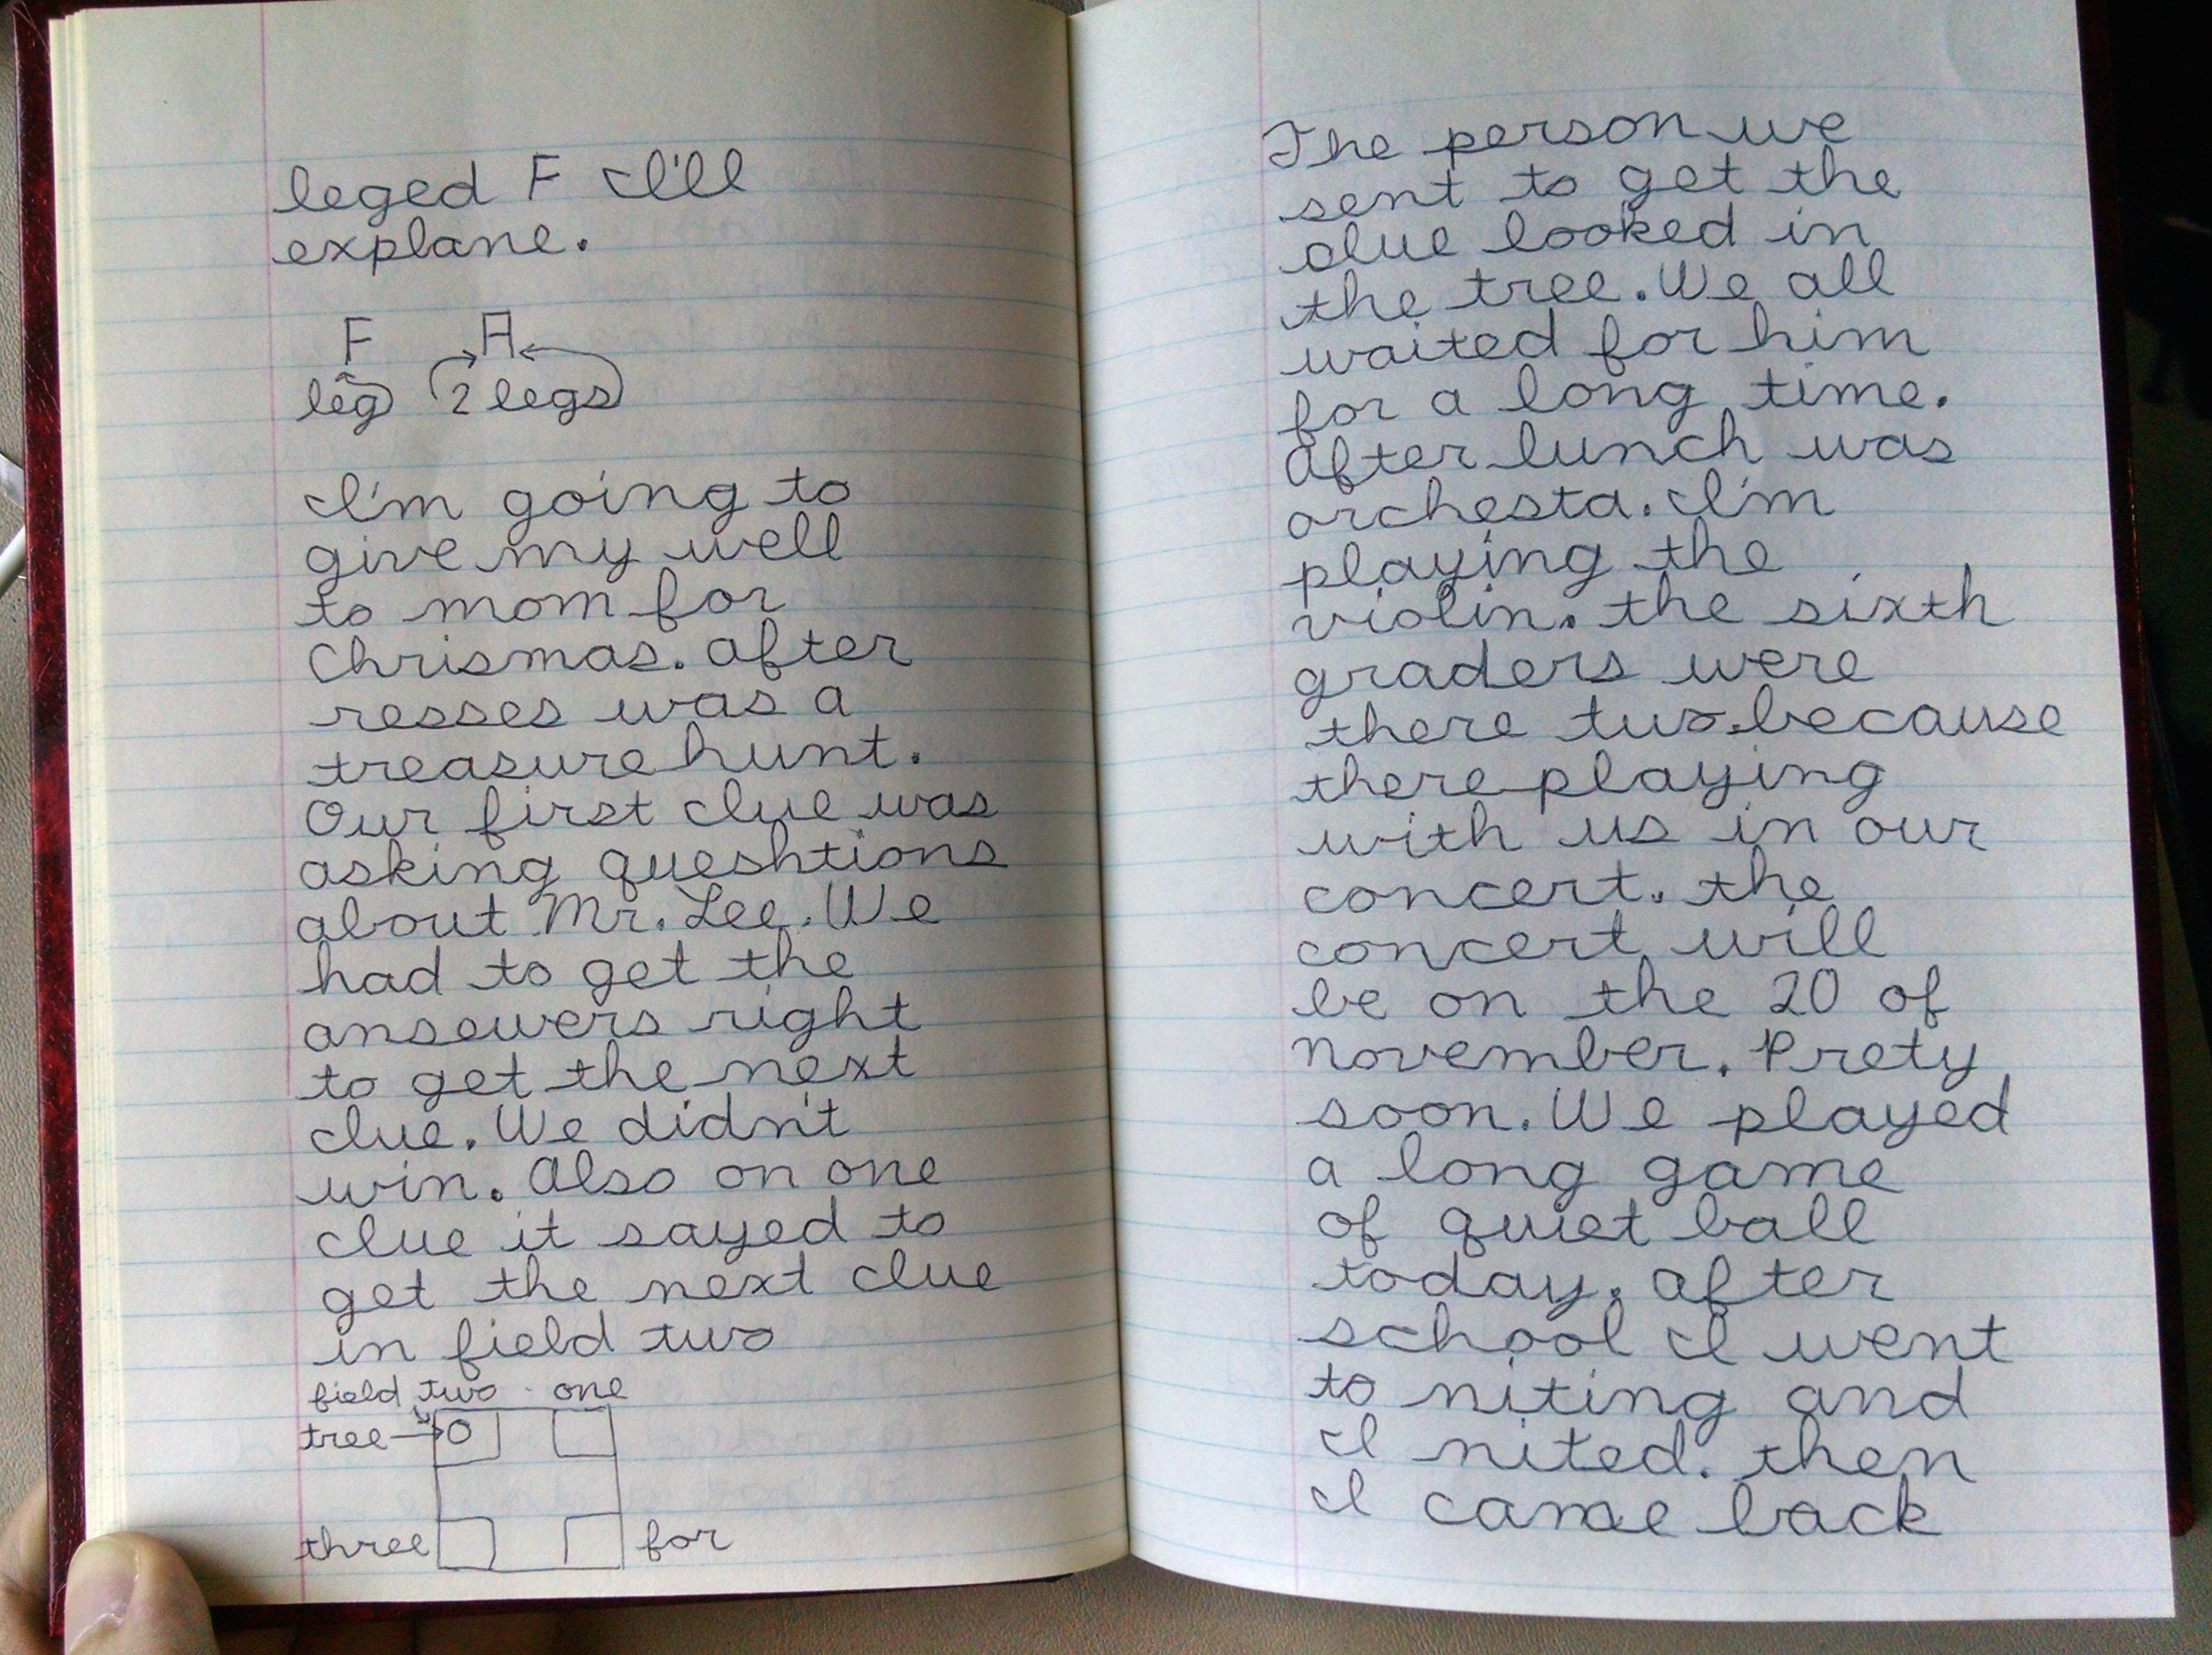 leged F I'll
explane.
F A
leg 2 legs
I'm going to
give my well
to mom for
Chrismas. After
resses was a
treasure hunt.
Our first clue was
asking queshtions
about Mr. Lee. We
had to get the
ansewers right
to get the next
clue. We didn't
win. Also on one
clue it sayed to
get the next clue
in field two
field two one
tree O
three for
The person we
sent to get the
clue looked in
the tree. We all
waited for him
for a long time.
After lunch was
orchesta. I'm
playing the
violin. the sixth
graders were
there two. because
there playing
with us in our
concert. the
concert will
be on the 20 of
November. Prety
soon. We played
a long game
of quiet ball
today. After
school I went
to niting and
I nited. then
I came back